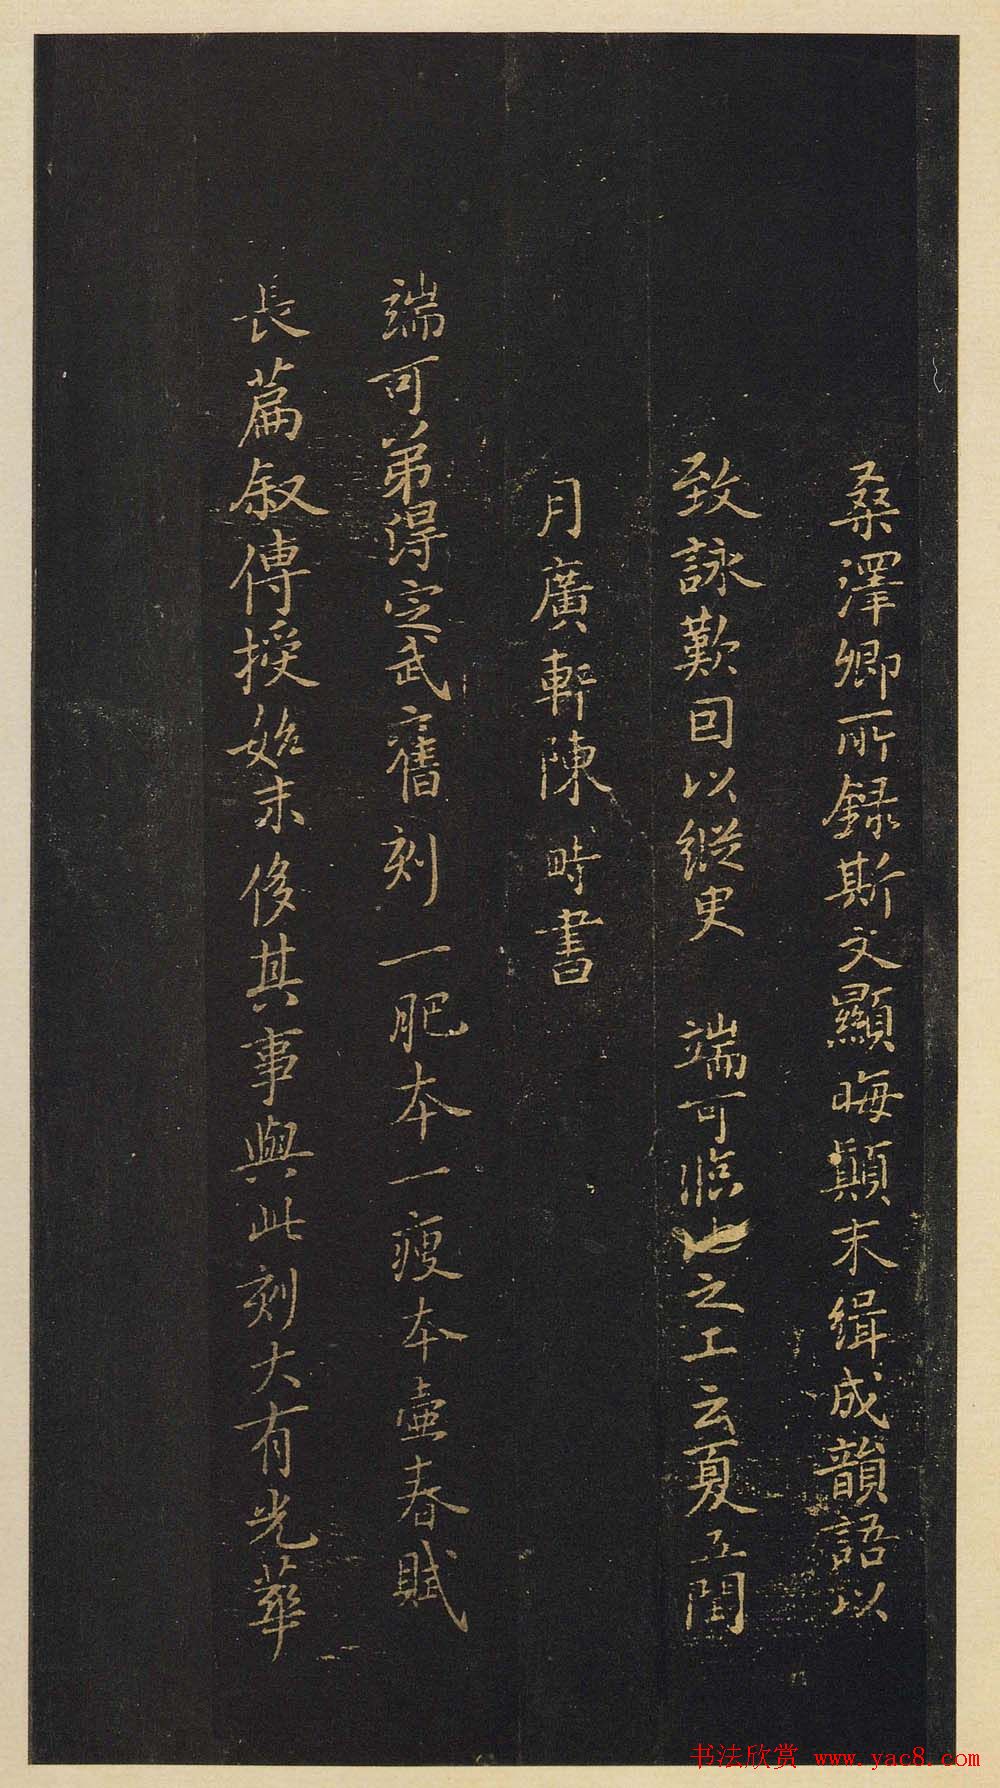 桑澤卿所録斯文顯晦顛末緝成韻語以
致詠歎因以縱臾 端可臨池之工云夏五閏
月廣軒陳時書
端可弟得定武舊刻一肥本一瘦本壷春賦
長篇叙傳授始末侈其事與此刻大有光華
书法欣赏 www.yac8.com